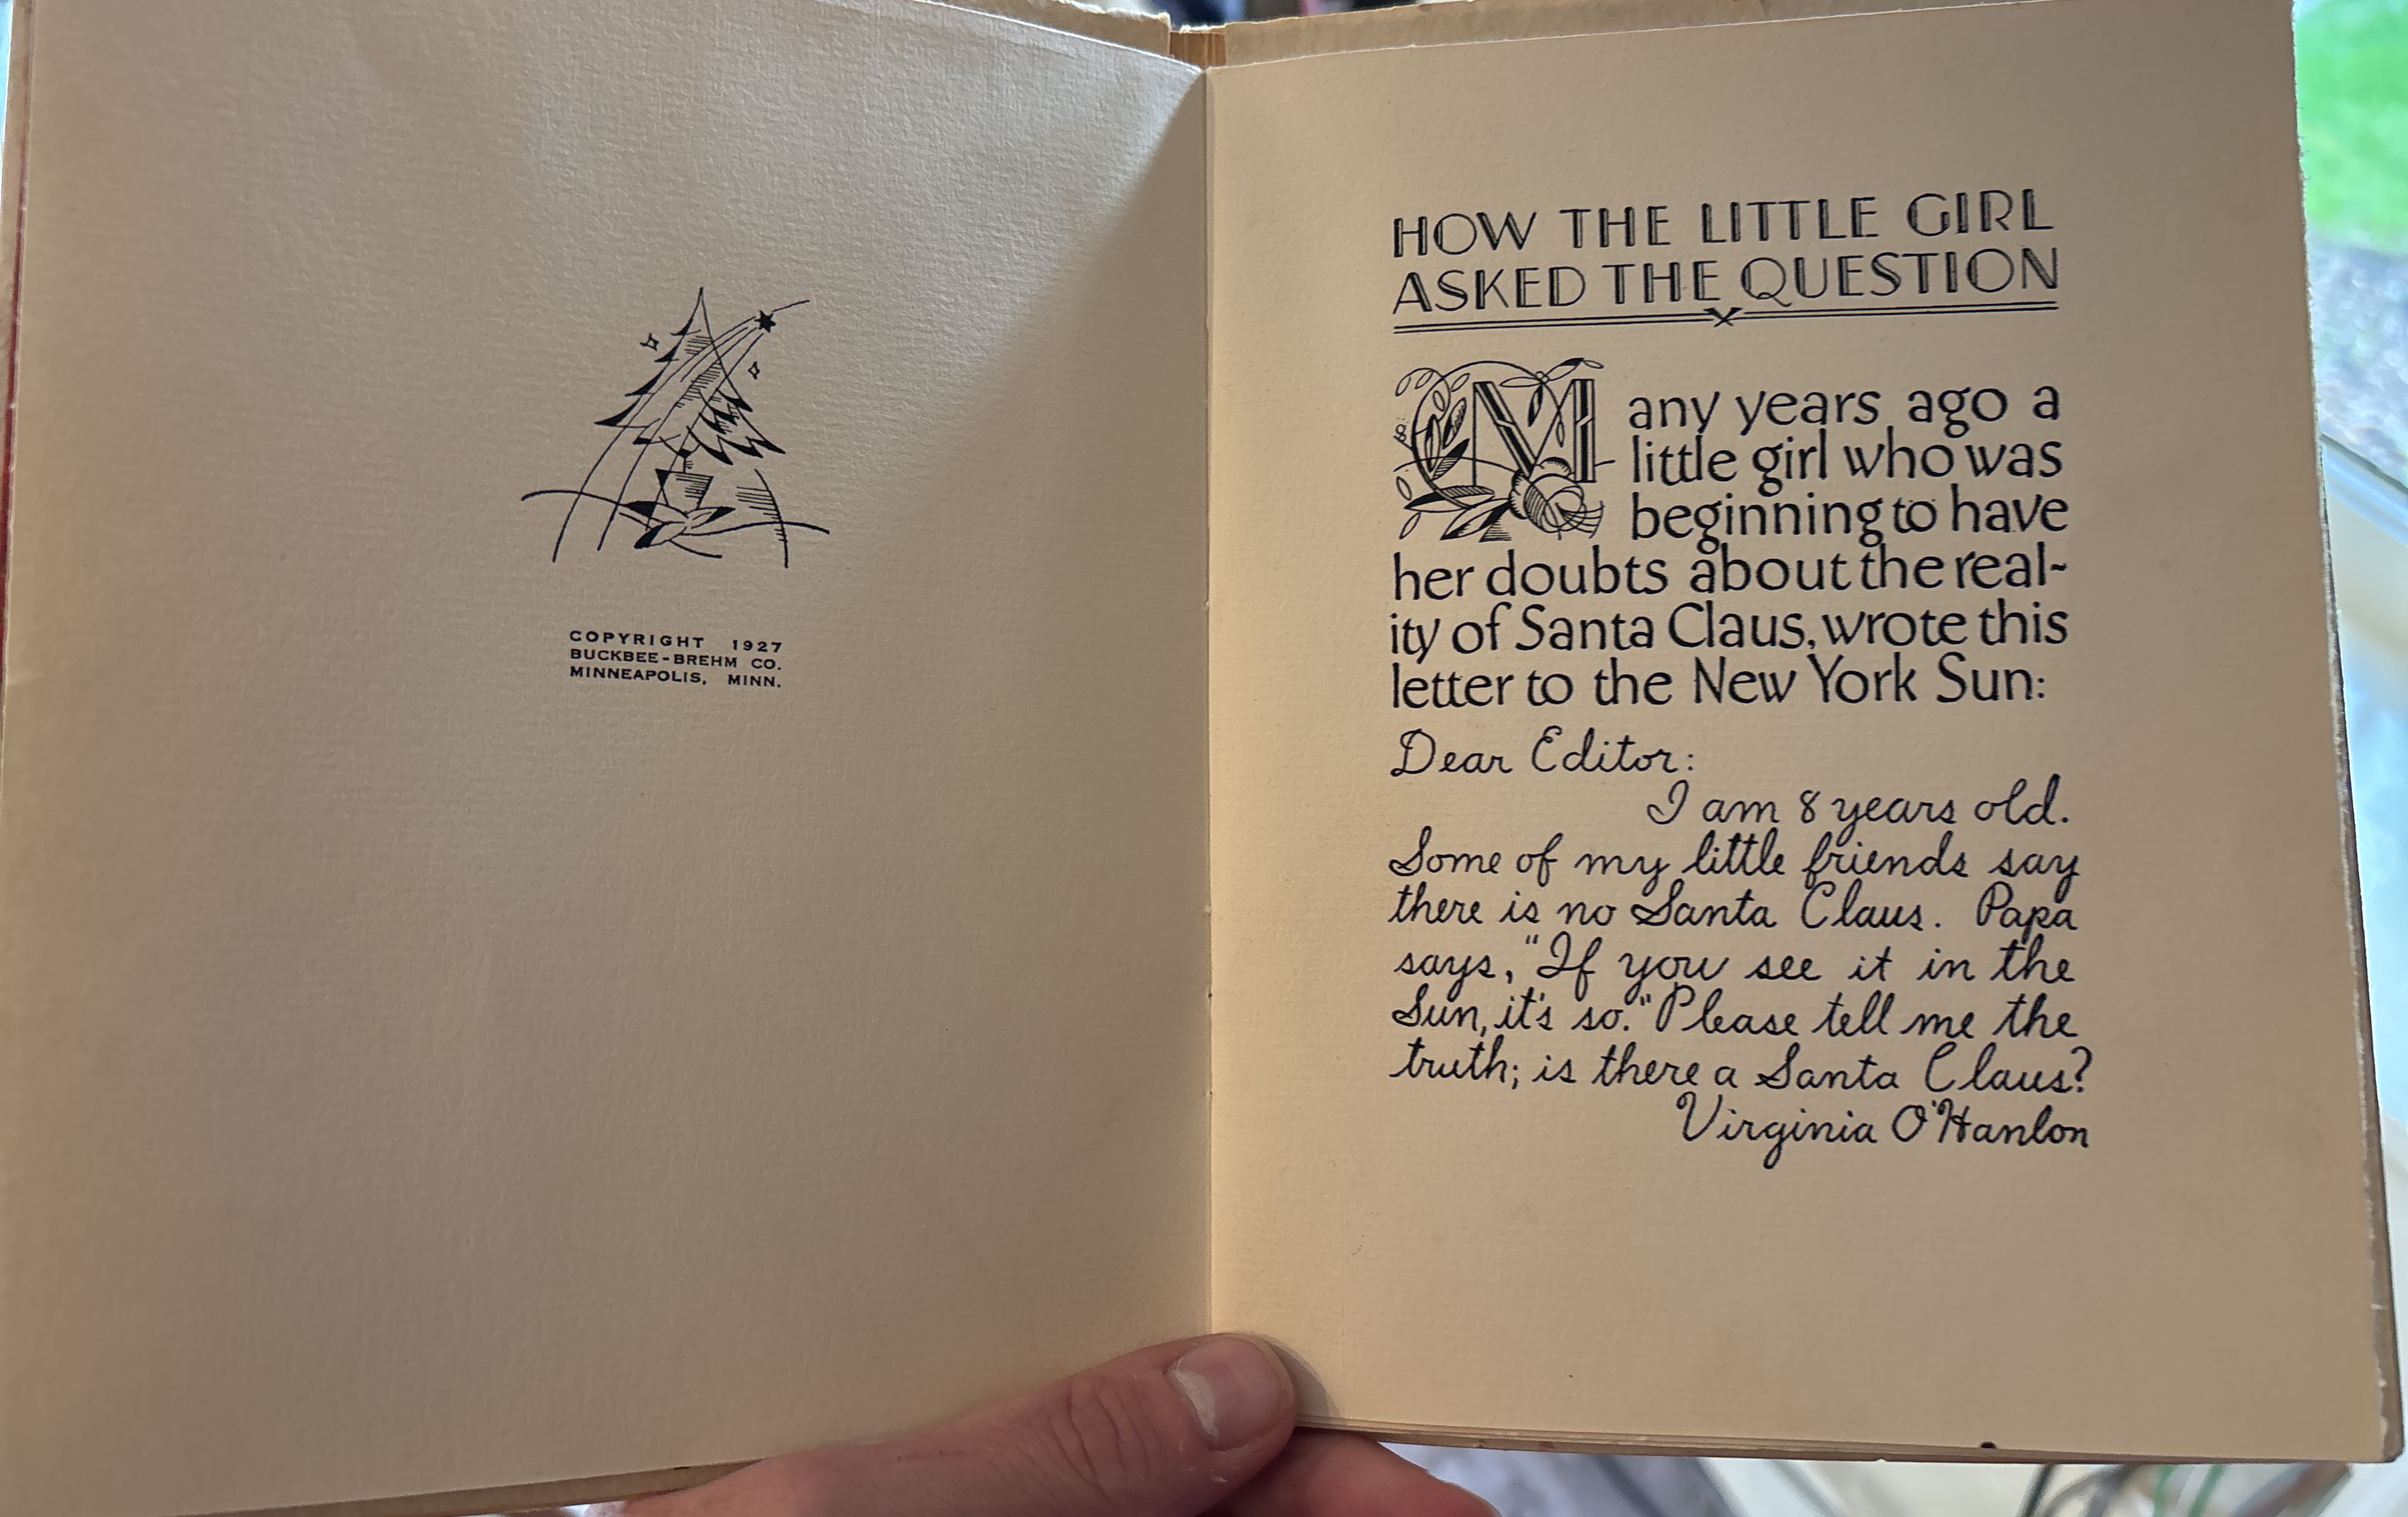 COPYRIGHT 1927
BUCKBEE-BREHM CO.
MINNEAPOLIS, MINN.
HOW THE LITTLE GIRL
ASKED THE QUESTION
Many years ago a
little girl who was
beginning to have
her doubts about the real-
ity of Santa Claus, wrote this
letter to the New York Sun:
Dear Editor:
I am 8 years old.
Some of my little friends say
there is no Santa Claus. Papa
says, "If you see it in the
Sun, it's so." Please tell me the
truth; is there a Santa Claus?
Virginia O'Hanlon